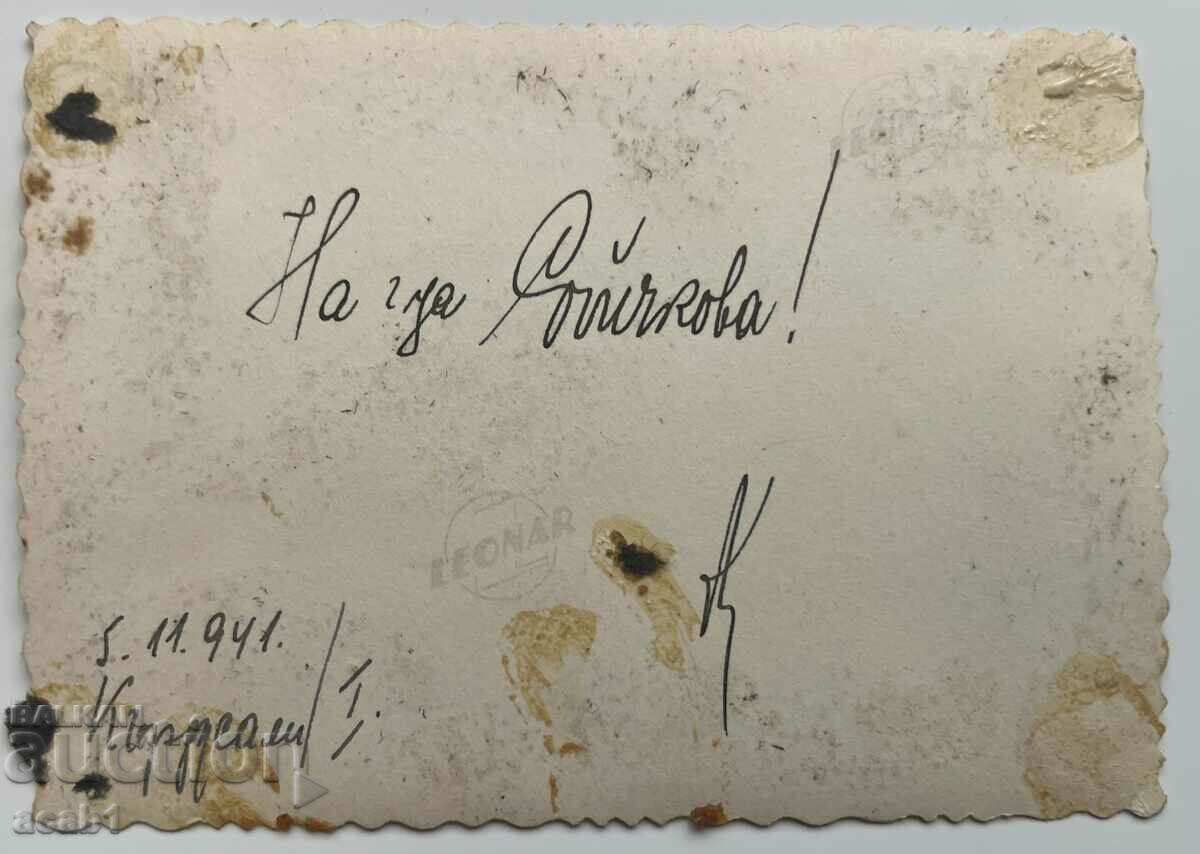 На г-ца Бойчкова!
LEONAR
5.11.941.
Кърджали / I.
BALKAN
auction
asab1